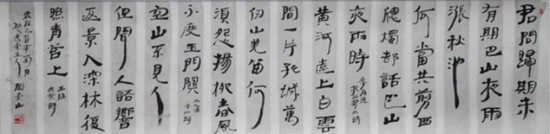 君問歸期未
有期巴山夜雨
漲秋池
何當共剪西
窗燭却話巴山
夜雨時
黄河遠上白雲
間一片孤城萬
仞山羌笛何
須怨楊柳春風
不度玉門關
空山不見人
但聞人語響
返景入深林復
照青苔上 王維